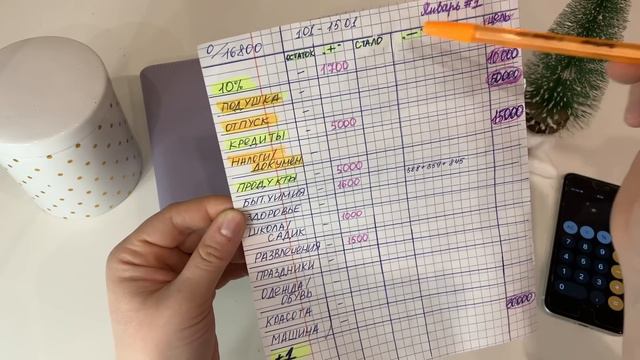 Январь #1
10.1 - 15.01
0/16800
ОСТАТОК "+" СТАЛО "-" ЦЕЛЬ
10% - 1700 10.000
ПОДУШКА - 50000
ОТПУСК -
КРЕДИТЫ - 5000 15000
НАЛОГИ/
ДОКУМЕН -
ПРОДУКТЫ - 5000
БЫТ.ХИМИЯ - 1600
ЗДОРОВЬЕ -
ШКОЛА/
САДИК - 1000
РАЗВЛЕЧЕНИЯ - 1500
ПРАЗДНИКИ -
ОДЕЖДА/
ОБУВЬ -
КРАСОТА -
МАШИНА
+1